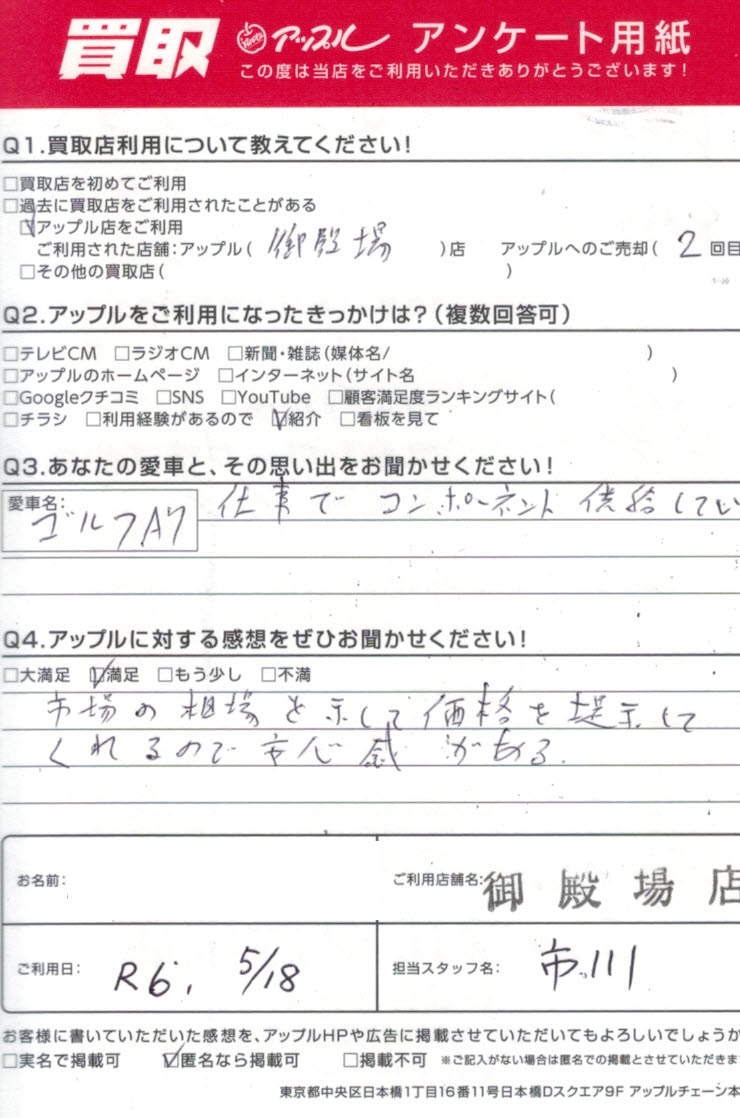 買取 アップル アンケート用紙
この度は当店をご利用いただきありがとうございます!
Q1.買取店利用について教えてください!
□買取店を初めてご利用
□過去に買取店をご利用されたことがある
☑アップル店をご利用
ご利用された店舗:アップル( 御殿場 )店 アップルへのご売却( 2 回目
□その他の買取店( )
Q2.アップルをご利用になったきっかけは?(複数回答可)
□テレビCM □ラジオCM □新聞・雑誌(媒体名/ )
□アップルのホームページ □インターネット(サイト名 )
□Googleクチコミ □SNS □YouTube □顧客満足度ランキングサイト(
□チラシ □利用経験があるので ☑紹介 □看板を見て
Q3.あなたの愛車と、その思い出をお聞かせください!
愛車名: ゴルフA7 仕事で コンポーネント 供給してい
Q4.アップルに対する感想をぜひお聞かせください!
□大満足 ☑満足 □もう少し □不満
市場の相場を示して価格を提示して
くれるので安心感がある.
お名前: ご利用店舗名: 御殿場店
ご利用日: R6, 5/18 担当スタッフ名: 市川
お客様に書いていただいた感想を、アップルHPや広告に掲載させていただいてもよろしいでしょうか
□実名で掲載可 ☑匿名なら掲載可 □掲載不可 ※ご記入がない場合は匿名での掲載とさせていただきま
東京都中央区日本橋1丁目16番11号日本橋Dスクエア9F アップルチェーン本